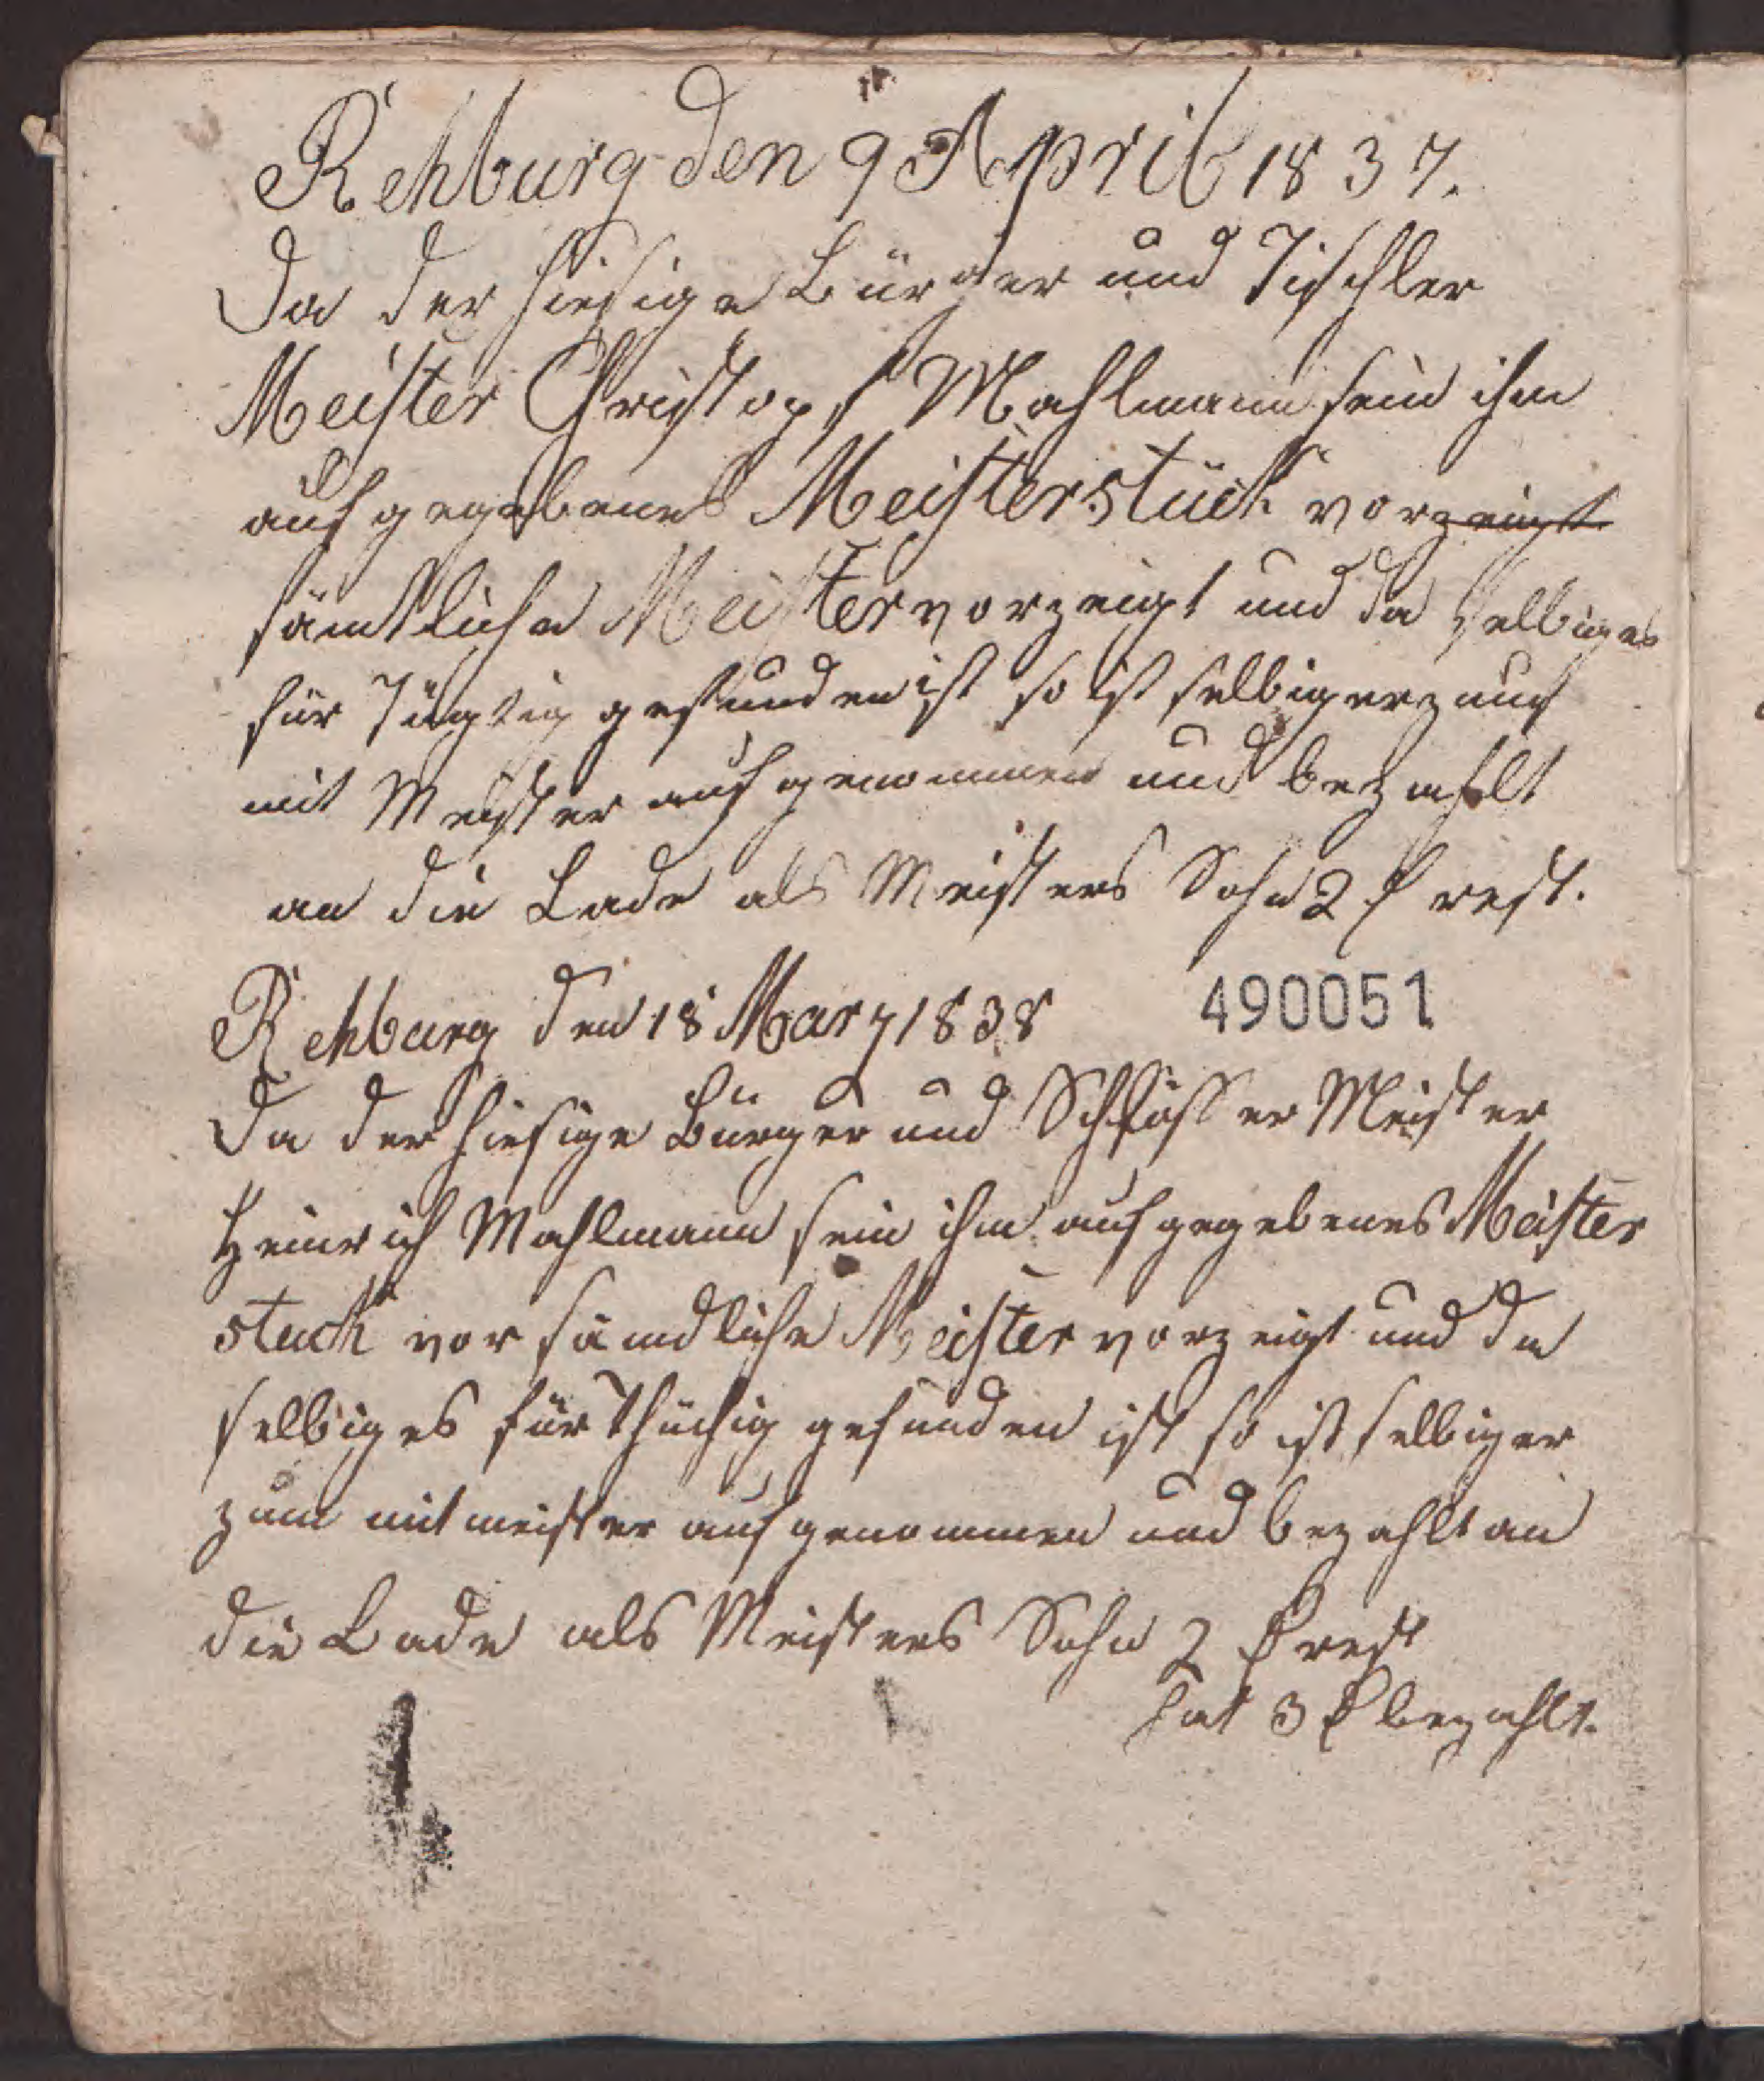 Rehburg den 9 April 1837.
Da der hiesige Bürger und Tischler
Meister Christoph Mahlmann sein ihm
aufgegebenes Meisterstück vorzeigt
sämtliche Meister vorzeigt und da selbiges
für Tügtig gefunden ist so ist selbiger zum
mit Meister aufgenommen und bezahlt
an die Lade als Meisters Sohn 2 rest.
Rehburg den 18 Marz 1838
490051
Da der hiesige Bürger und Schlösser Meister
Heinrich Mahlmann sein ihm aufgegebenes Meister
stück vor sämdliche Meister vorzeigt und da
selbiges für thüchig gefunden ist so ist selbiger
zum mitmeister aufgenommen und bezahlt an
die Lade als Meisters Sohn 2 rest
hat 3 bezahlt.